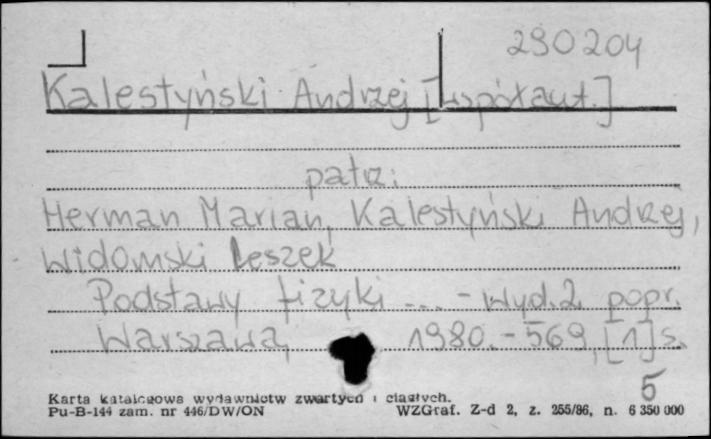 290204
Kalestyński Andrzej [współaut.]
patrz:
Herman Marian, Kalestyński Andrzej,
Widomski Leszek
Podstawy fizyki ... - Wyd. 2 popr.
Warszawa, 1980. - 569, [1] s.
5
Karta katalogowa wydawnictw zwartych i ciągłych.
Pu-B-144 zam. nr 446/DW/ON WZGraf. Z-d 2, z. 255/86, n. 6 350 000